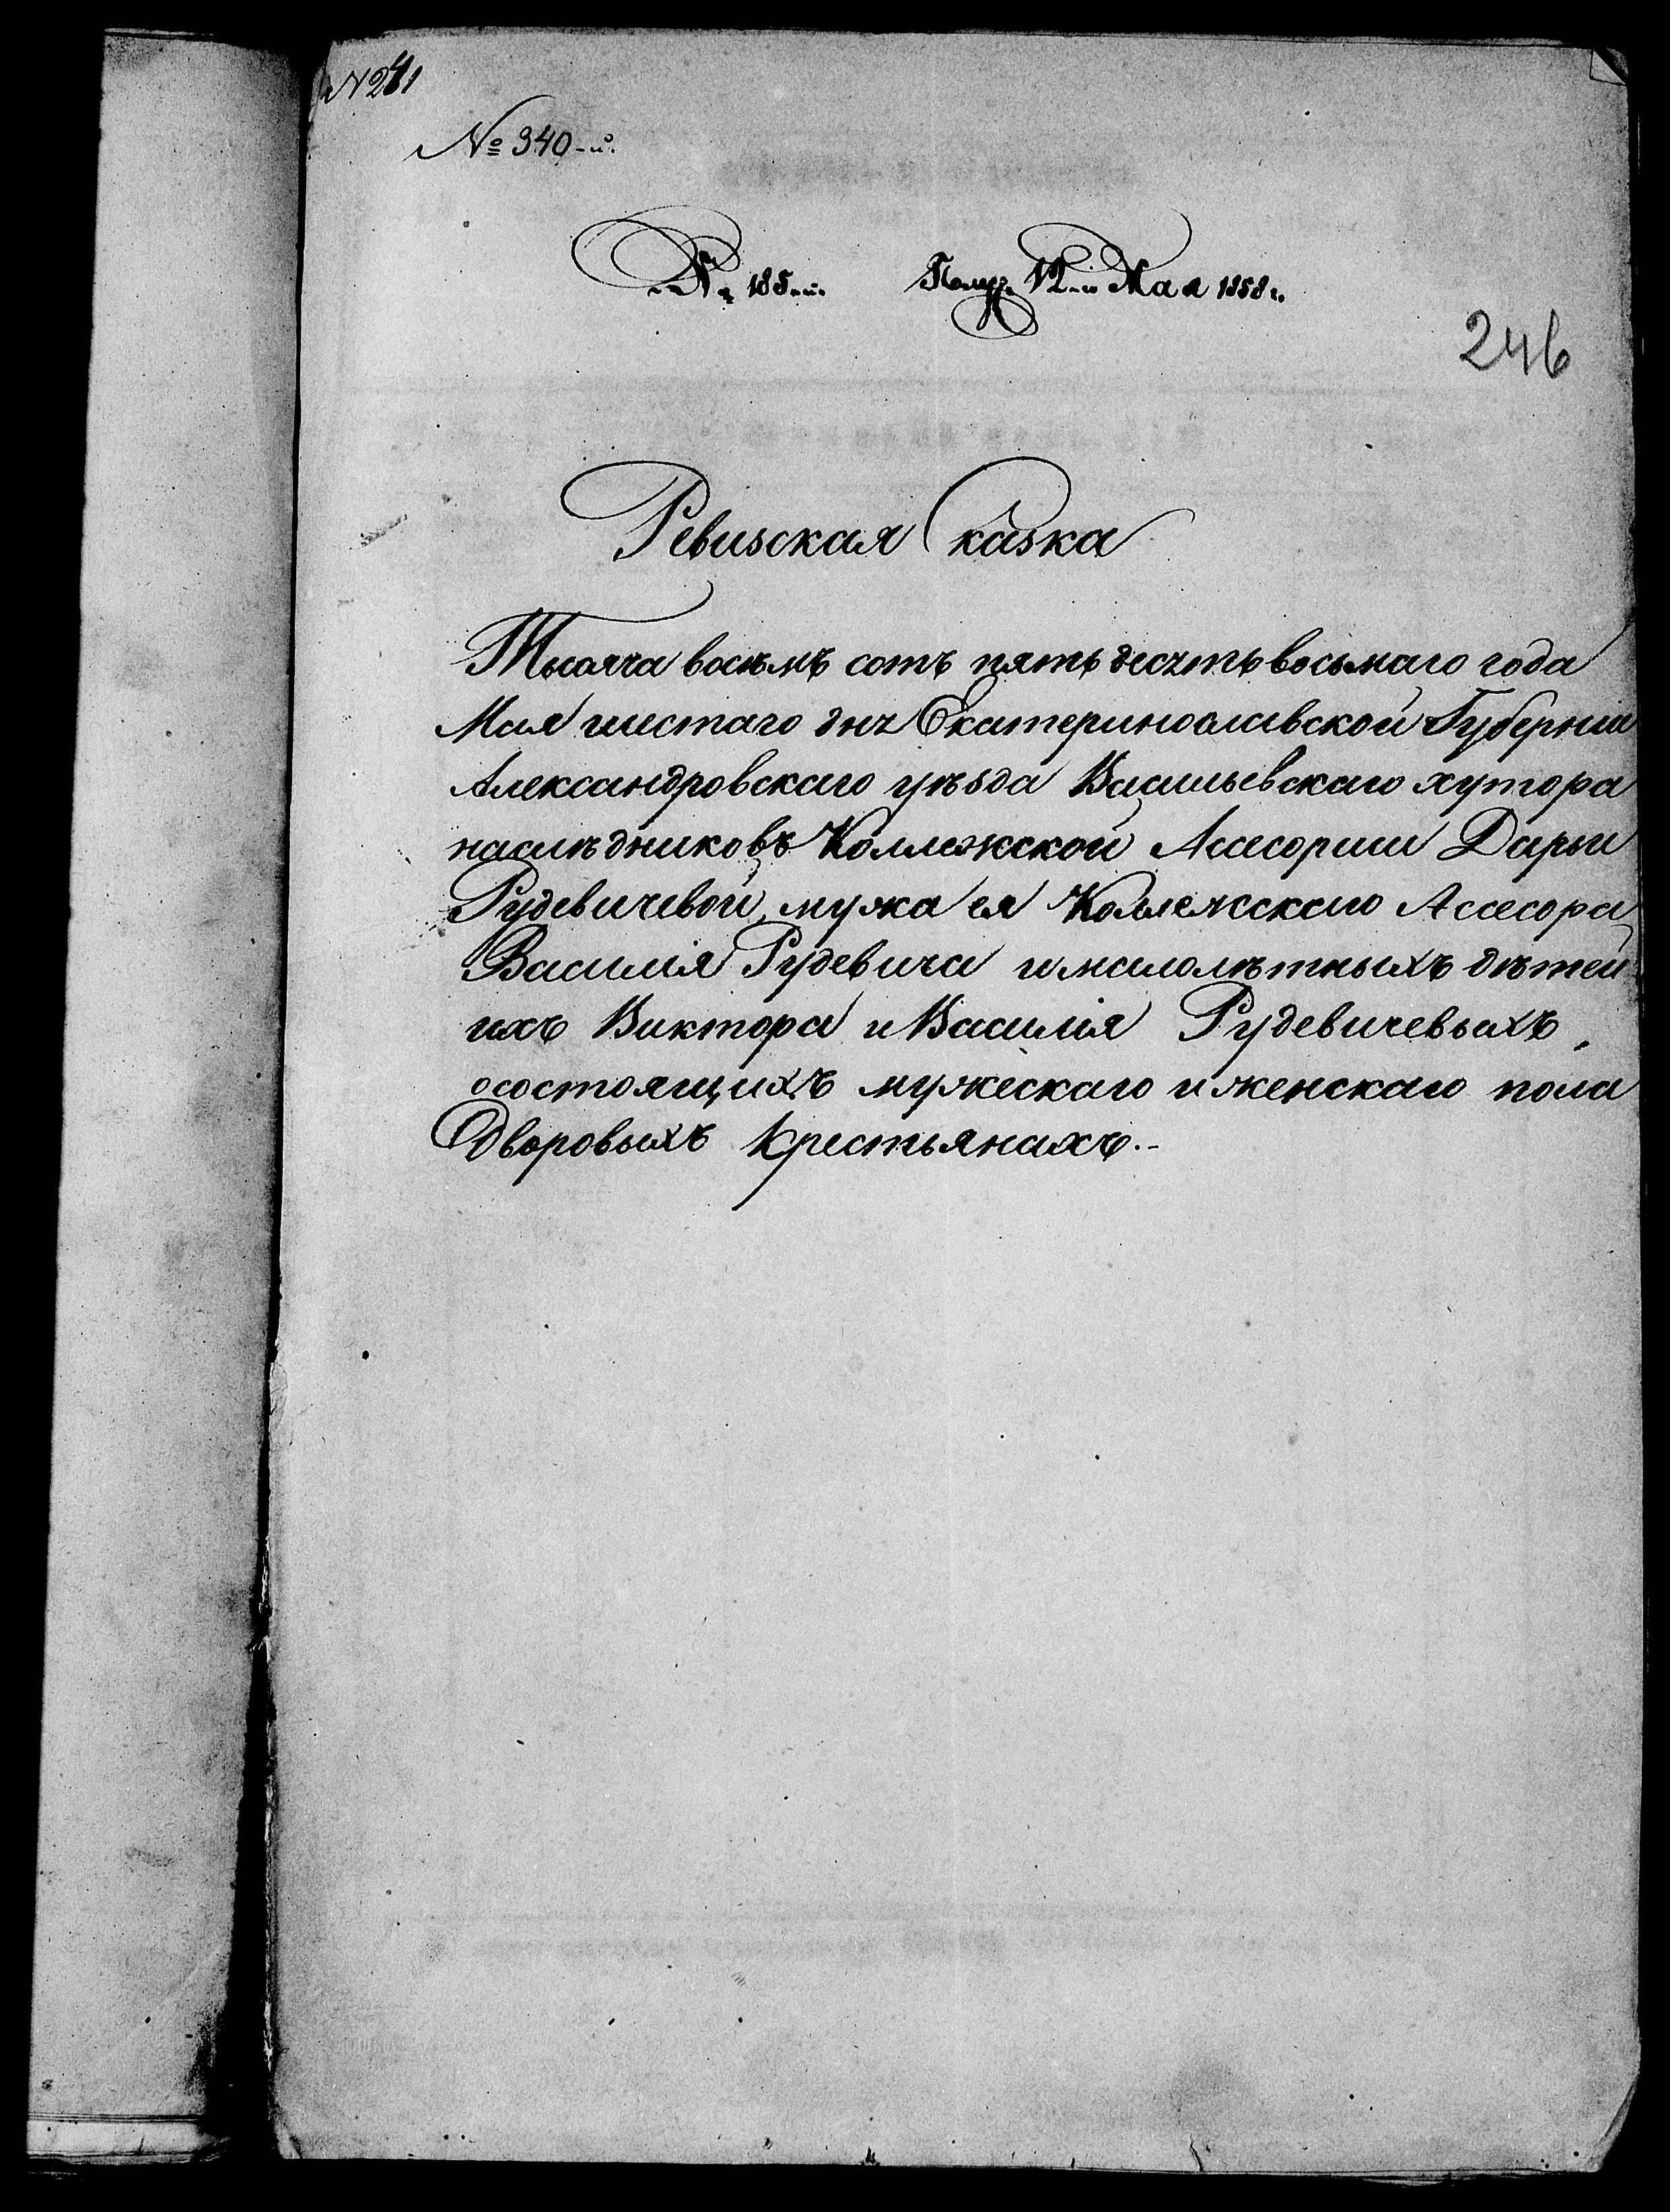 № 241
№ 340-й.
№ 185-й. Получ. 12-го Мая 1858 г.
246
Ревизская Сказка
Тысяча восемъ сотъ пять десятъ восьмаго года
Мая шестаго дня Екатеринославской Губерніи
Александровскаго уѣзда Васильевскаго хутора
наслѣдниковъ Коллежской Асесорши Дарьи
Рудевичевой, мужа ея Коллежскаго Асесора
Василія Рудевича и малолѣтныхъ дѣтей
ихъ Виктора и Василія Рудевичевыхъ,
о состоящихъ мужескаго и женскаго пола
Дворовыхъ Крестьянахъ.-